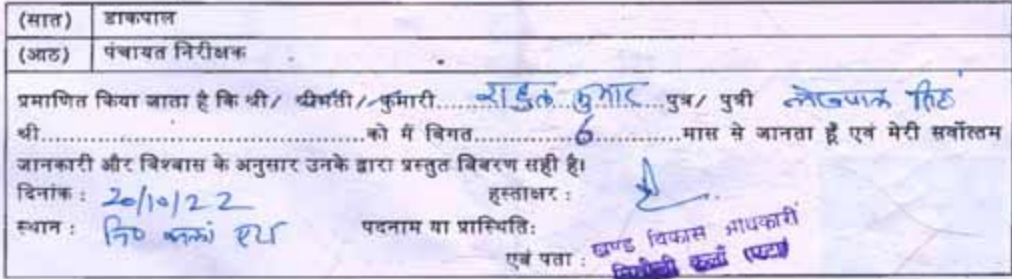 (सात) डाकपाल
(आठ) पंचायत निरीक्षक
प्रमाणित किया जाता है कि श्री/ श्रीमती/ कुमारी.....राहुल कुमार....पुत्र/ पुत्री सिंह
श्री.............................................को मैं विगत...............6.................मास से जानता हूँ एवं मेरी सर्वोत्तम
जानकारी और विश्वास के अनुसार उनके द्वारा प्रस्तुत विवरण सही है।
दिनांक : 20/10/22 हस्ताक्षर :
स्थान : नि० कलां एटा पदनाम या प्रास्थिति:
एवं पता : खण्ड विकास अधिकारी
निधौली कलाँ (एटा)